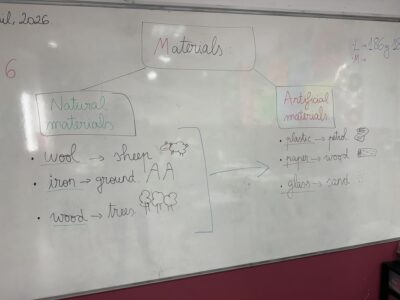 2026.
Materials
L → 186 y 18
M →
6
Natural
materials
Artificial
materials
• wool → sheep
• iron → ground
• wood → trees
• plastic → petrol
• paper → wood
• glass → sand